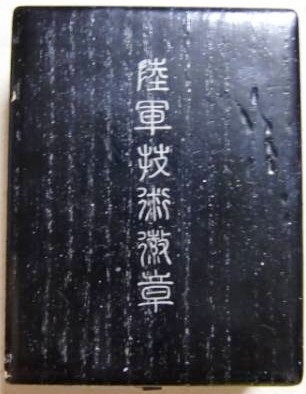 陸軍技術徽章